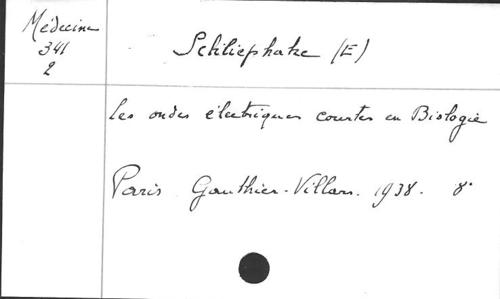 Médecine
341
2
Schliephake (E)
Les ondes électriques courtes en Biologie
Paris. Gauthier-Villars. 1938. 8°